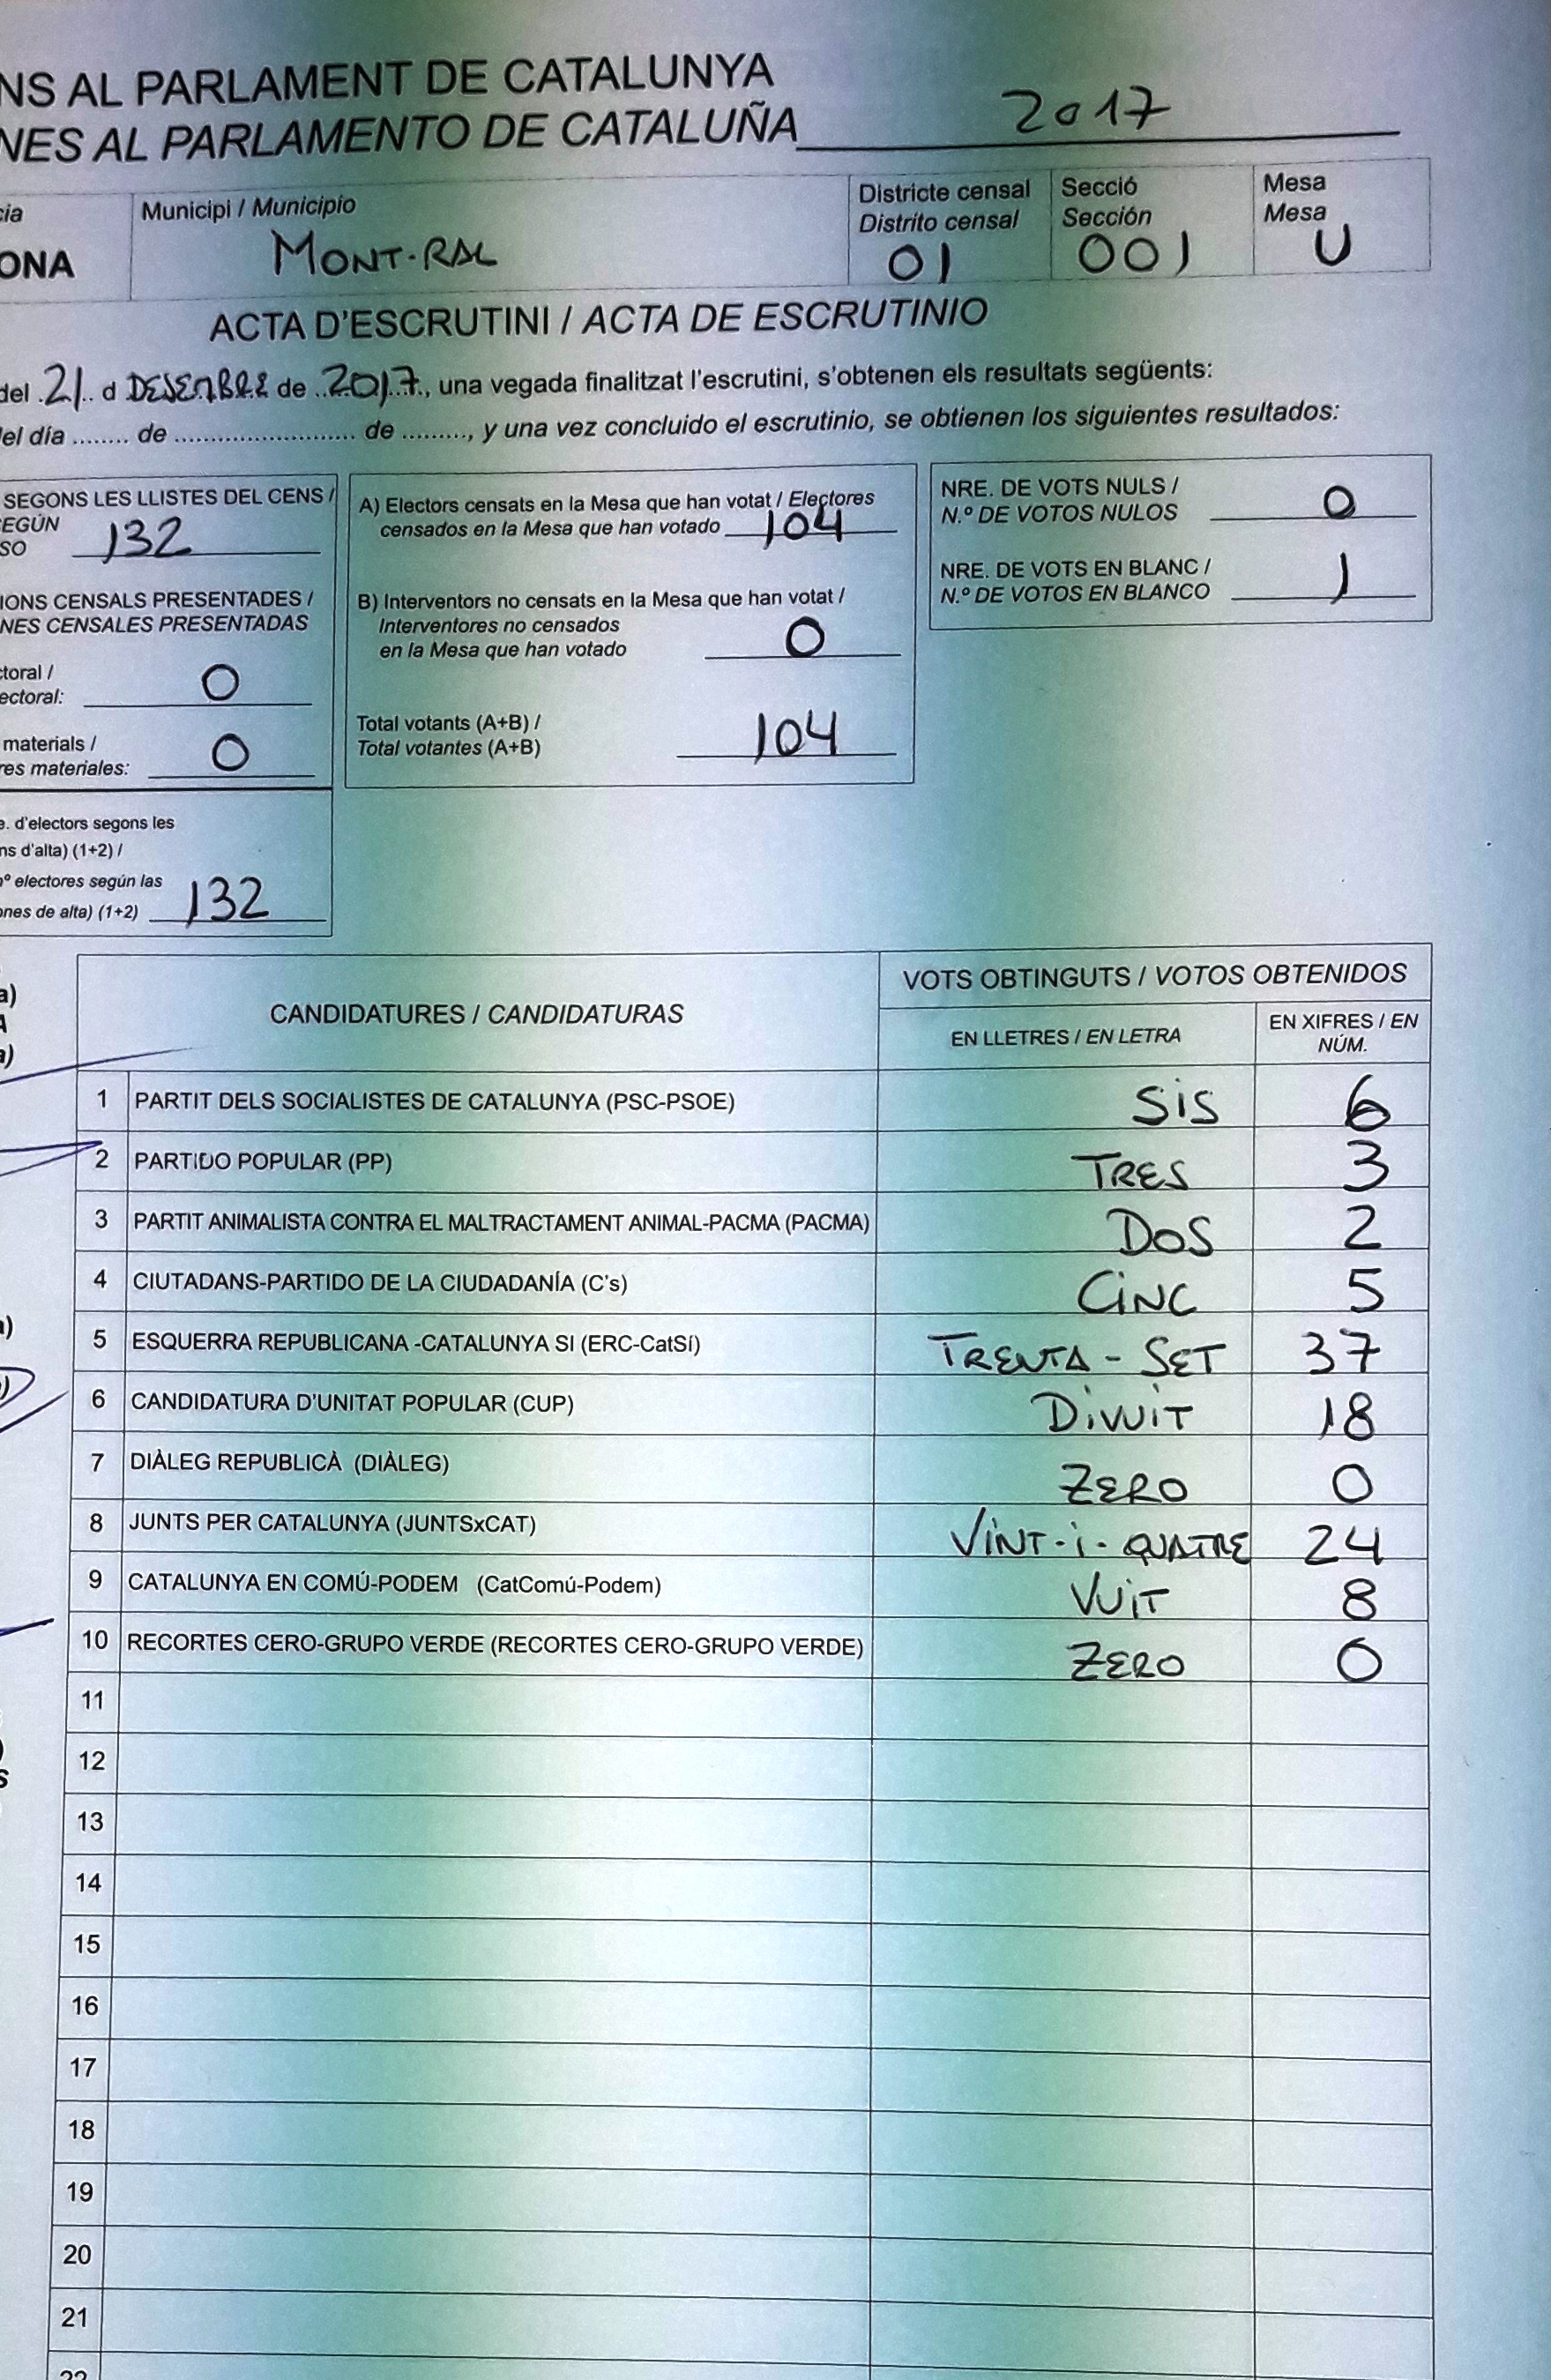 NS AL PARLAMENT DE CATALUNYA
NES AL PARLAMENTO DE CATALUÑA 2017
cia
ONA
Municipi / Municipio
MONT-RAL
Districte censal
Distrito censal
01
Secció
Sección
001
Mesa
Mesa
U
ACTA D'ESCRUTINI / ACTA DE ESCRUTINIO
del 21 d DESEMBRE de 2017, una vegada finalitzat l'escrutini, s'obtenen els resultats següents:
el día ........ de .......................... de ........., y una vez concluido el escrutinio, se obtienen los siguientes resultados:
SEGONS LES LLISTES DEL CENS /
EGÚN
SO 132
IONS CENSALS PRESENTADES /
NES CENSALES PRESENTADAS
ctoral /
ectoral: 0
materials /
res materiales: 0
e. d'electors segons les
ns d'alta) (1+2) /
nº electores según las
ones de alta) (1+2) 132
A) Electors censats en la Mesa que han votat / Electores
censados en la Mesa que han votado 104
B) Interventors no censats en la Mesa que han votat /
Interventores no censados
en la Mesa que han votado 0
Total votants (A+B) /
Total votantes (A+B) 104
NRE. DE VOTS NULS /
N.º DE VOTOS NULOS 0
NRE. DE VOTS EN BLANC /
N.º DE VOTOS EN BLANCO 1
a)
A
a)
CANDIDATURES / CANDIDATURAS
VOTS OBTINGUTS / VOTOS OBTENIDOS
EN LLETRES / EN LETRA
EN XIFRES / EN
NÚM.
1 PARTIT DELS SOCIALISTES DE CATALUNYA (PSC-PSOE) SIS 6
2 PARTIDO POPULAR (PP) TRES 3
3 PARTIT ANIMALISTA CONTRA EL MALTRACTAMENT ANIMAL-PACMA (PACMA) DOS 2
4 CIUTADANS-PARTIDO DE LA CIUDADANÍA (C's) CINC 5
5 ESQUERRA REPUBLICANA -CATALUNYA SI (ERC-CatSí) TRENTA - SET 37
6 CANDIDATURA D'UNITAT POPULAR (CUP) DIVUIT 18
7 DIÀLEG REPUBLICÀ (DIÀLEG) ZERO 0
8 JUNTS PER CATALUNYA (JUNTSxCAT) VINT-I-QUATRE 24
9 CATALUNYA EN COMÚ-PODEM (CatComú-Podem) VUIT 8
10 RECORTES CERO-GRUPO VERDE (RECORTES CERO-GRUPO VERDE) ZERO 0
11
12
13
14
15
16
17
18
19
20
21
22